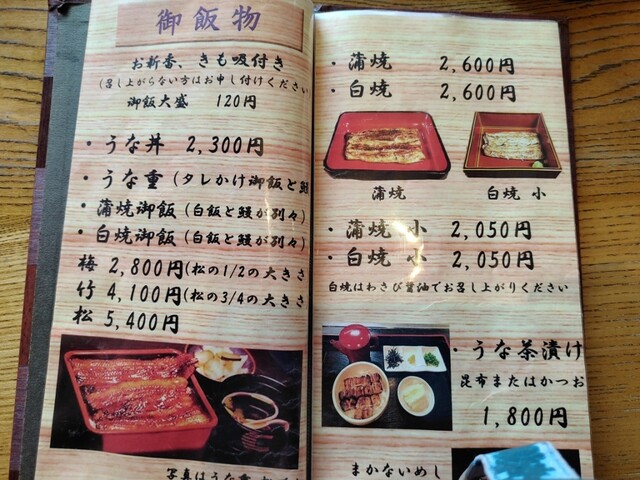 御飯物
お新香、きも吸付き
(召し上がらない方はお申し付けください
御飯大盛 120円
・うな丼 2,300円
・うな重(タレかけ御飯と鰻
・蒲焼御飯(白飯と鰻が別々)
・白焼御飯(白飯と鰻が別々)
梅 2,800円(松の1/2の大きさ
竹 4,100円(松の3/4の大きさ
松 5,400円
写真はうな重
・蒲焼 2,600円
・白焼 2,600円
蒲焼
白焼 小
・蒲焼 小 2,050円
・白焼 小 2,050円
白焼はわさび醤油でお召し上がりください
・うな茶漬け
昆布またはかつお
1,800円
まかないめし